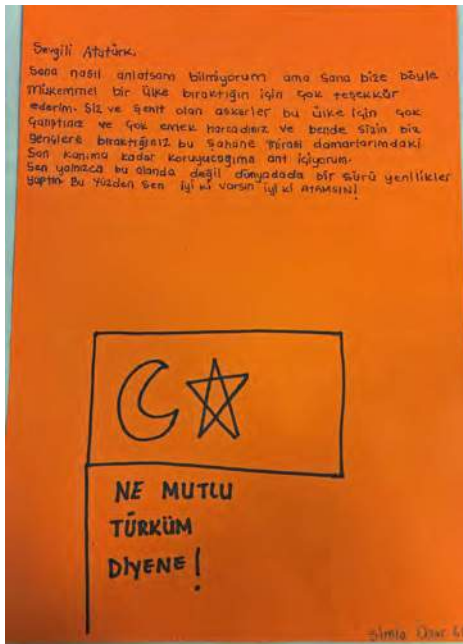 Sevgili Atatürk,
Sana nasıl anlatsam bilmiyorum ama sana bize böyle
mükemmel bir ülke bıraktığın için çok teşekkür
ederim. Siz ve şehit olan askerler bu ülke için çok
çalıştınız ve çok emek harcadınız ve bende sizin biz
gençlere bıraktığınız bu şahane mirası damarlarımdaki
Son kanıma kadar koruyucağıma ant içiyorum.
Sen yalnızca bu alanda değil dünyadada bir sürü yenilikler
yaptın. Bu yüzden sen iyi ki varsın iyi ki ATAMSIN!
NE MUTLU
TÜRKÜM
DİYENE!